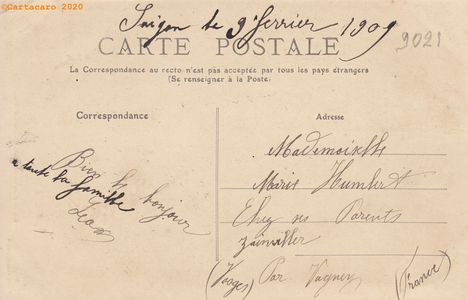 ©Cartacaro 2020
Saigon le 9 fevrier 1909
9021
CARTE POSTALE
La Correspondance au recto n'est pas acceptée par tous les pays étrangers
(Se renseigner à la Poste)
Correspondance
Adresse
Bien le bonjour
a toute la famille
Mademoiselle
Marie Humbert
Chez ses Parents
Zainviller
Par Vagney
(Vosges)
(France)